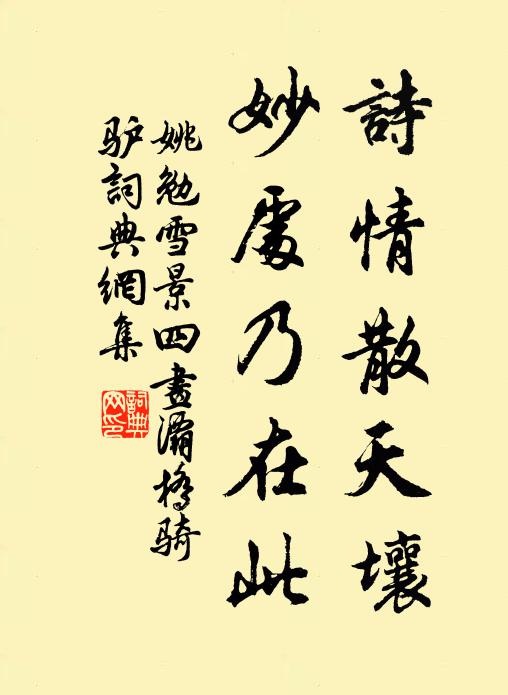 詩情散天壤
妙處乃在此
姚勉雪景四畫灞橋骑
驴詞典網集
詞典
网印